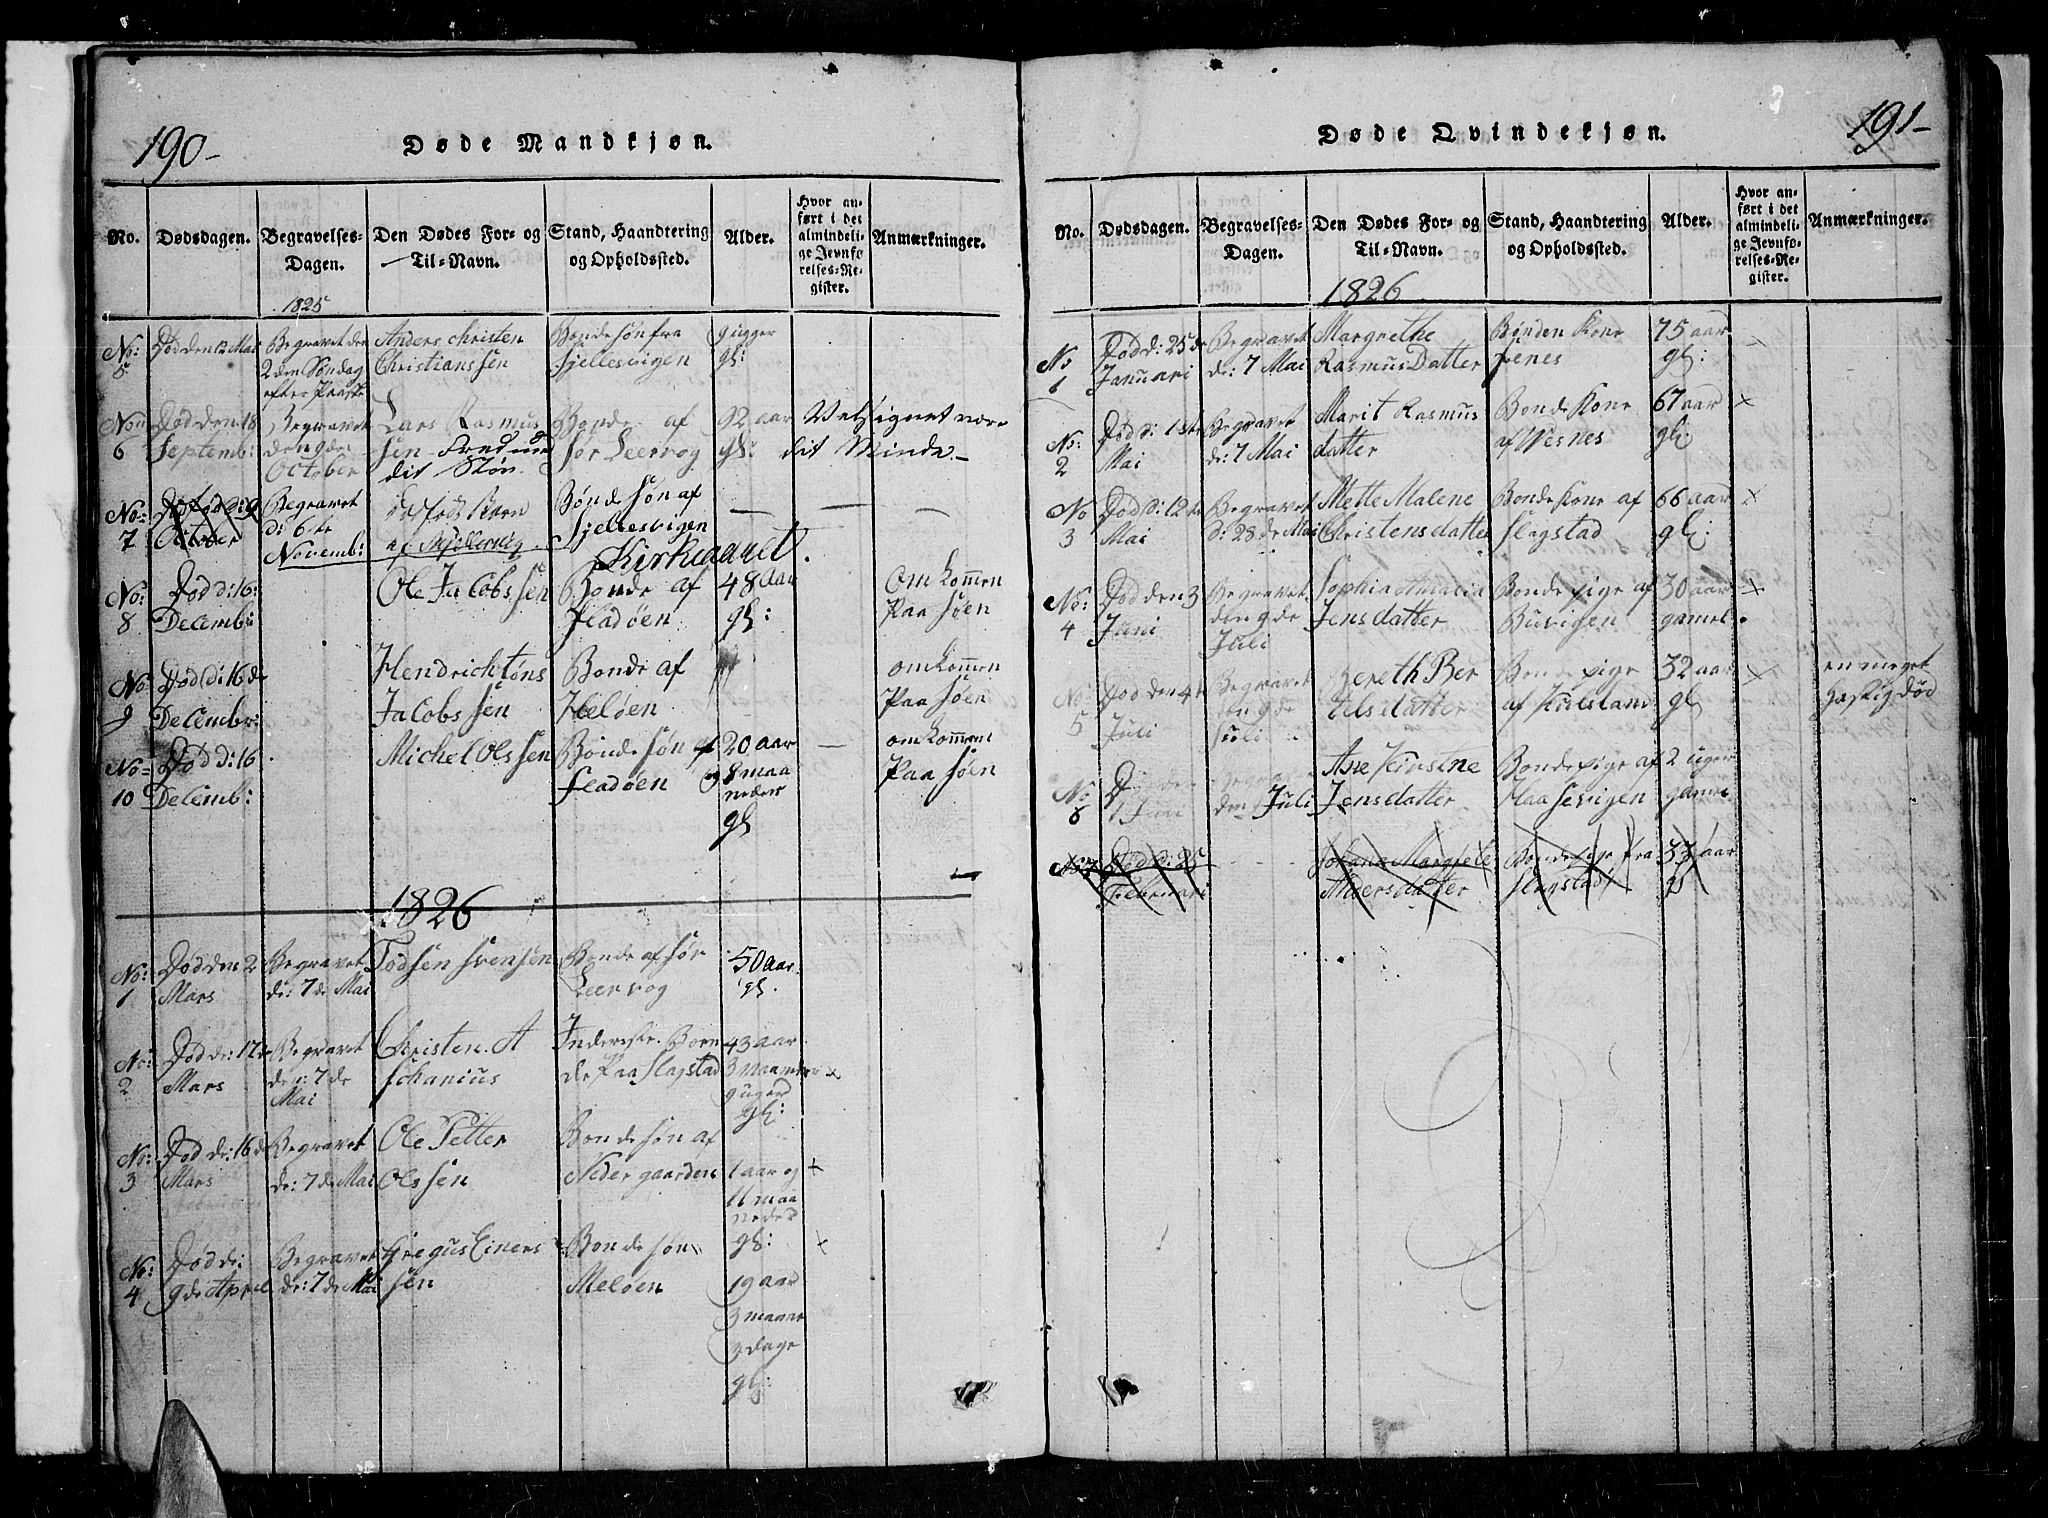 190-
Døde Mandkjøn.
No.
Dødsdagen.
Begravelses-
Dagen.
Den Dødes For- og
Til-Navn.
Stand, Haandtering
og Opholdssted.
Alder.
Hvor an-
ført i det
almindeli-
ge Jevnfø-
relses-Re-
gister.
Anmærkninger.
1825
No: 5
Død den 12 Mai
Begravet den
2den Søndag
efter Paaske
Anders Christen
Christianssen
Bonde søn fra
Sjellesvigen
9 ugger
gl:
No: 6
Død den 18
Septemb:
Begravet
den 9de
October
Lars Rasmus
sen Fred med
dit Støv
Bonde af
Sør Leervog
92 aar
gl:
Velsignet være
dit Minde.-
No: 7
Død d: 9
October
Begravet
d: 6te
Novemb:
Bønde søn af
Sjellesvigen
No: 8
Død d: 16:
Decemb:
Ole Jacobssen
Bonde af
Fladøen
48 aar
gl:
omkommen
Paa Søen
No 9
Død d: 16de
Decembr:
Hendrich Tøns
Jacobssen
Bonde af
Heløen
omkommen
Paa Søen
No= 10
Død d: 16
Decemb:
Michel Olssen
Bonde søn af
Fladøen
20 aar
og 8 maa
neder
gl
omkommen
Paa Søen
1826
No: 1
Død den 2
Mars
Begravet
de: 7de Mai
Todsen Svensen
Bonde af Sør
Leervog
50 aar.
gl.
No: 2
Død de: 12de
Mars
Begravet
den 7de
Mai
Christen. A
Johanius
Inderste. Boen
de Paa Slagstad
43 aar
3 maaneder
9 uger
gl:
No: 3
Død de: 16de
Mars
Begravet
de: 7de Mai
Ole Petter
Olssen
Bonde søn af
Neder gaarden
1 aar og
11 maa
neder
gl:
No: 4
Død de:
9de April
Begravet
de: 7de Mai
Gregus Einers
sen
Bonde søn
Meløen
19 aar
3 maaner
3 dage
gl:
191-
Døde Qvindekjøn.
No.
Dødsdagen.
Begravelses-
Dagen.
Den Dødes For- og
Til-Navn.
Stand, Haandtering
og Opholdssted.
Alder.
Hvor an-
ført i det
almindeli-
ge Jevnfø-
relses-Re-
gister.
Anmærkninger.
1826
No 1
Død d: 25de
Januari
Begravet
de: 7 Mai
Margrethe
Rasmus Datter
Bønden Kone
Fenes
75 aar
gl:
No: 2
Død d: 1ste
Mai
Begravet
de: 7 Mai
Marit Rasmus
datter
Bonde Kone
af Wesnes
67 aar
gl:
No 3
Død d: 12te
Mai
Begravet
d: 28de Mai
Mette Malene
Christensdatter
Bonde Kone af
Slagstad
66 aar
gl:
No: 4
Død den 3
Juni
Begravet
den 9de
Juli
Sophia Amalia
Jensdatter
Bonde pige af
Buvigen
30 aar
gamel.
No: 5
Død den 4t
Juli
Begravet
den 9de
Juli
Bereth Ber
tilsdatter
Bonde pige
32 aar
gl
en meget
hastig død
No 6
Juni
Begravet
den Juli
Ane Kirstine
Jensdatter
Bonde pige af
Haasevigen
2 uger
gamel
No: 7
Død d: 25
Februari
Johana Margrete
Andersdatter
Bonde pige fra
Slagstad
33 aar
gl